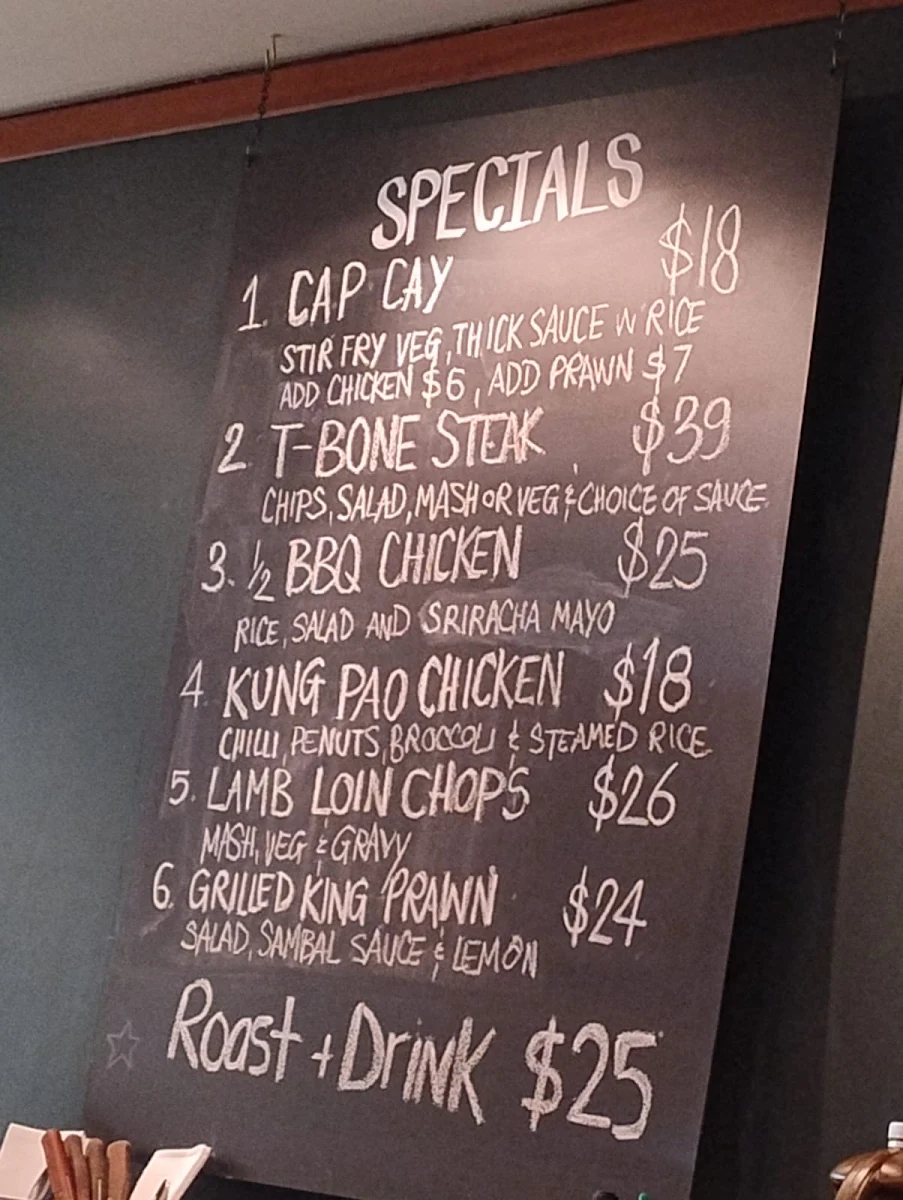 SPECIALS
1. CAP CAY $18
STIR FRY VEG, THICK SAUCE W RICE
ADD CHICKEN $6, ADD PRAWN $7
2. T-BONE STEAK $39
CHIPS, SALAD, MASH OR VEG & CHOICE OF SAUCE
3. ½ BBQ CHICKEN $25
RICE, SALAD AND SRIRACHA MAYO
4. KUNG PAO CHICKEN $18
CHILLI, PENUTS, BROCCOLI & STEAMED RICE
5. LAMB LOIN CHOPS $26
MASH, VEG & GRAVY
6. GRILLED KING PRAWN $24
SALAD, SAMBAL SAUCE & LEMON
Roast + Drink $25